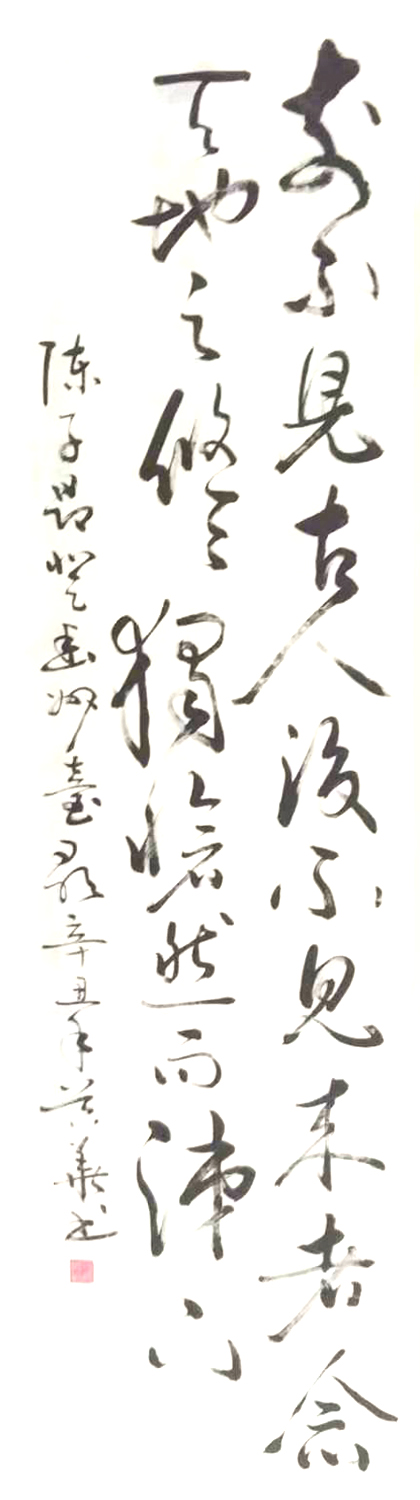 前不見古人後不見来者念
天地之悠々獨愴然而涕下
陈子昂登幽州臺歌辛丑年華书